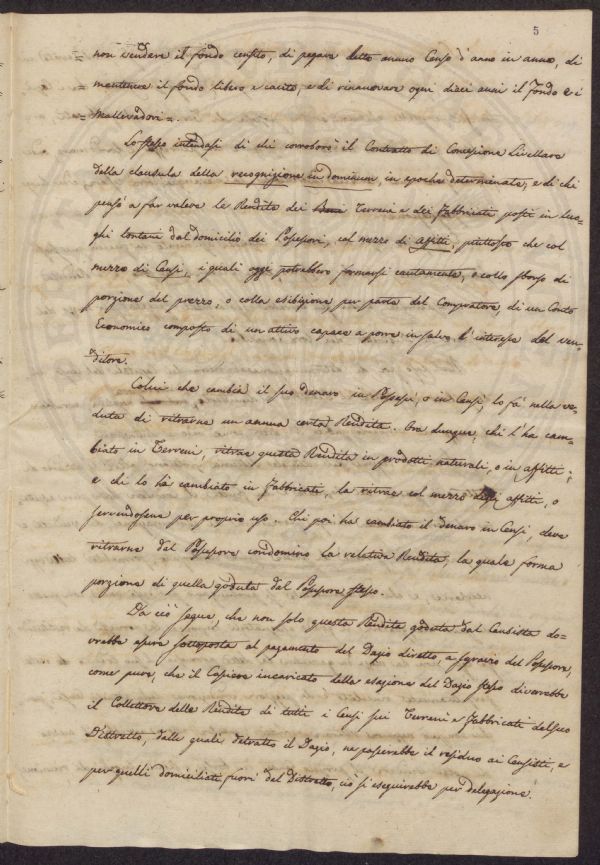 5
non vendere il fondo censito, di pagare detto annuo Censo d'anno in anno, di
mantenere il fondo libero e cauto, e di rinnovare ogni dieci anni il Fondo e i
=Mallevadori=.
Lo stesso intendasi di chi corroborò il Contratto di Concessione Livellare
della clausula della recognizione in dominum, in epoche determinate, e di chi
pensò a far valere le Rendite dei Terreni e dei Fabbricati posti in luo=
ghi lontani dal domicilio dei Possessori, col mezzo di affitti, piuttosto che col
mezzo di Censi, i quali oggi potrebbero formarsi cautamente, o collo sborso di
porzione del prezzo, o colla esibizione per parte del Compratore, di un Conto
Economico composto di un attivo capace a porre in salvo l'interesse del ven=
ditore.
Colui che cambia il suo denaro in Possessi, o in Censi, lo fà nella ve=
duta di ritrarne un annua certa Rendita. Ora dunque, chi l'ha cam=
biato in Terreni, ritrae questa Rendita in prodotti naturali, o in affitti;
e chi lo ha cambiato in Fabbricati, la ritrae col mezzo degli affitti, o
servendosene per proprio uso. Chi poi ha cambiato il denaro in Censi, deve
ritrarne dal Possessore condomino la relativa Rendita, la quale forma
porzione di quella goduta dal Possessore stesso.
Da ciò segue, che non solo questa Rendita goduta dal Censista do=
vrebbe essere sottoposta al pagamento del Dazio diretto, a sgravio del Possessore,
come pure, che il Cassiere incaricato della esazione del Dazio stesso diverrebbe
il Collettore delle Rendite di tutti i Censi sui Terreni e Fabbricati del suo
Distretto, dalle quali detratto il Dazio, ne passerebbe il residuo ai Censisti, e
per quelli domiciliati fuori del Distretto, ciò si eseguirebbe per delegazione.